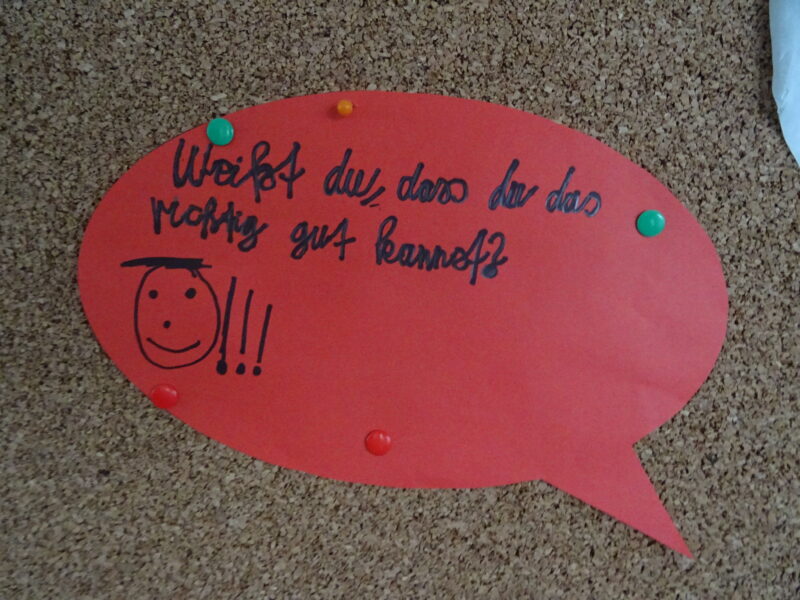 Weißt du, dass du das
richtig gut kannst?
!!!